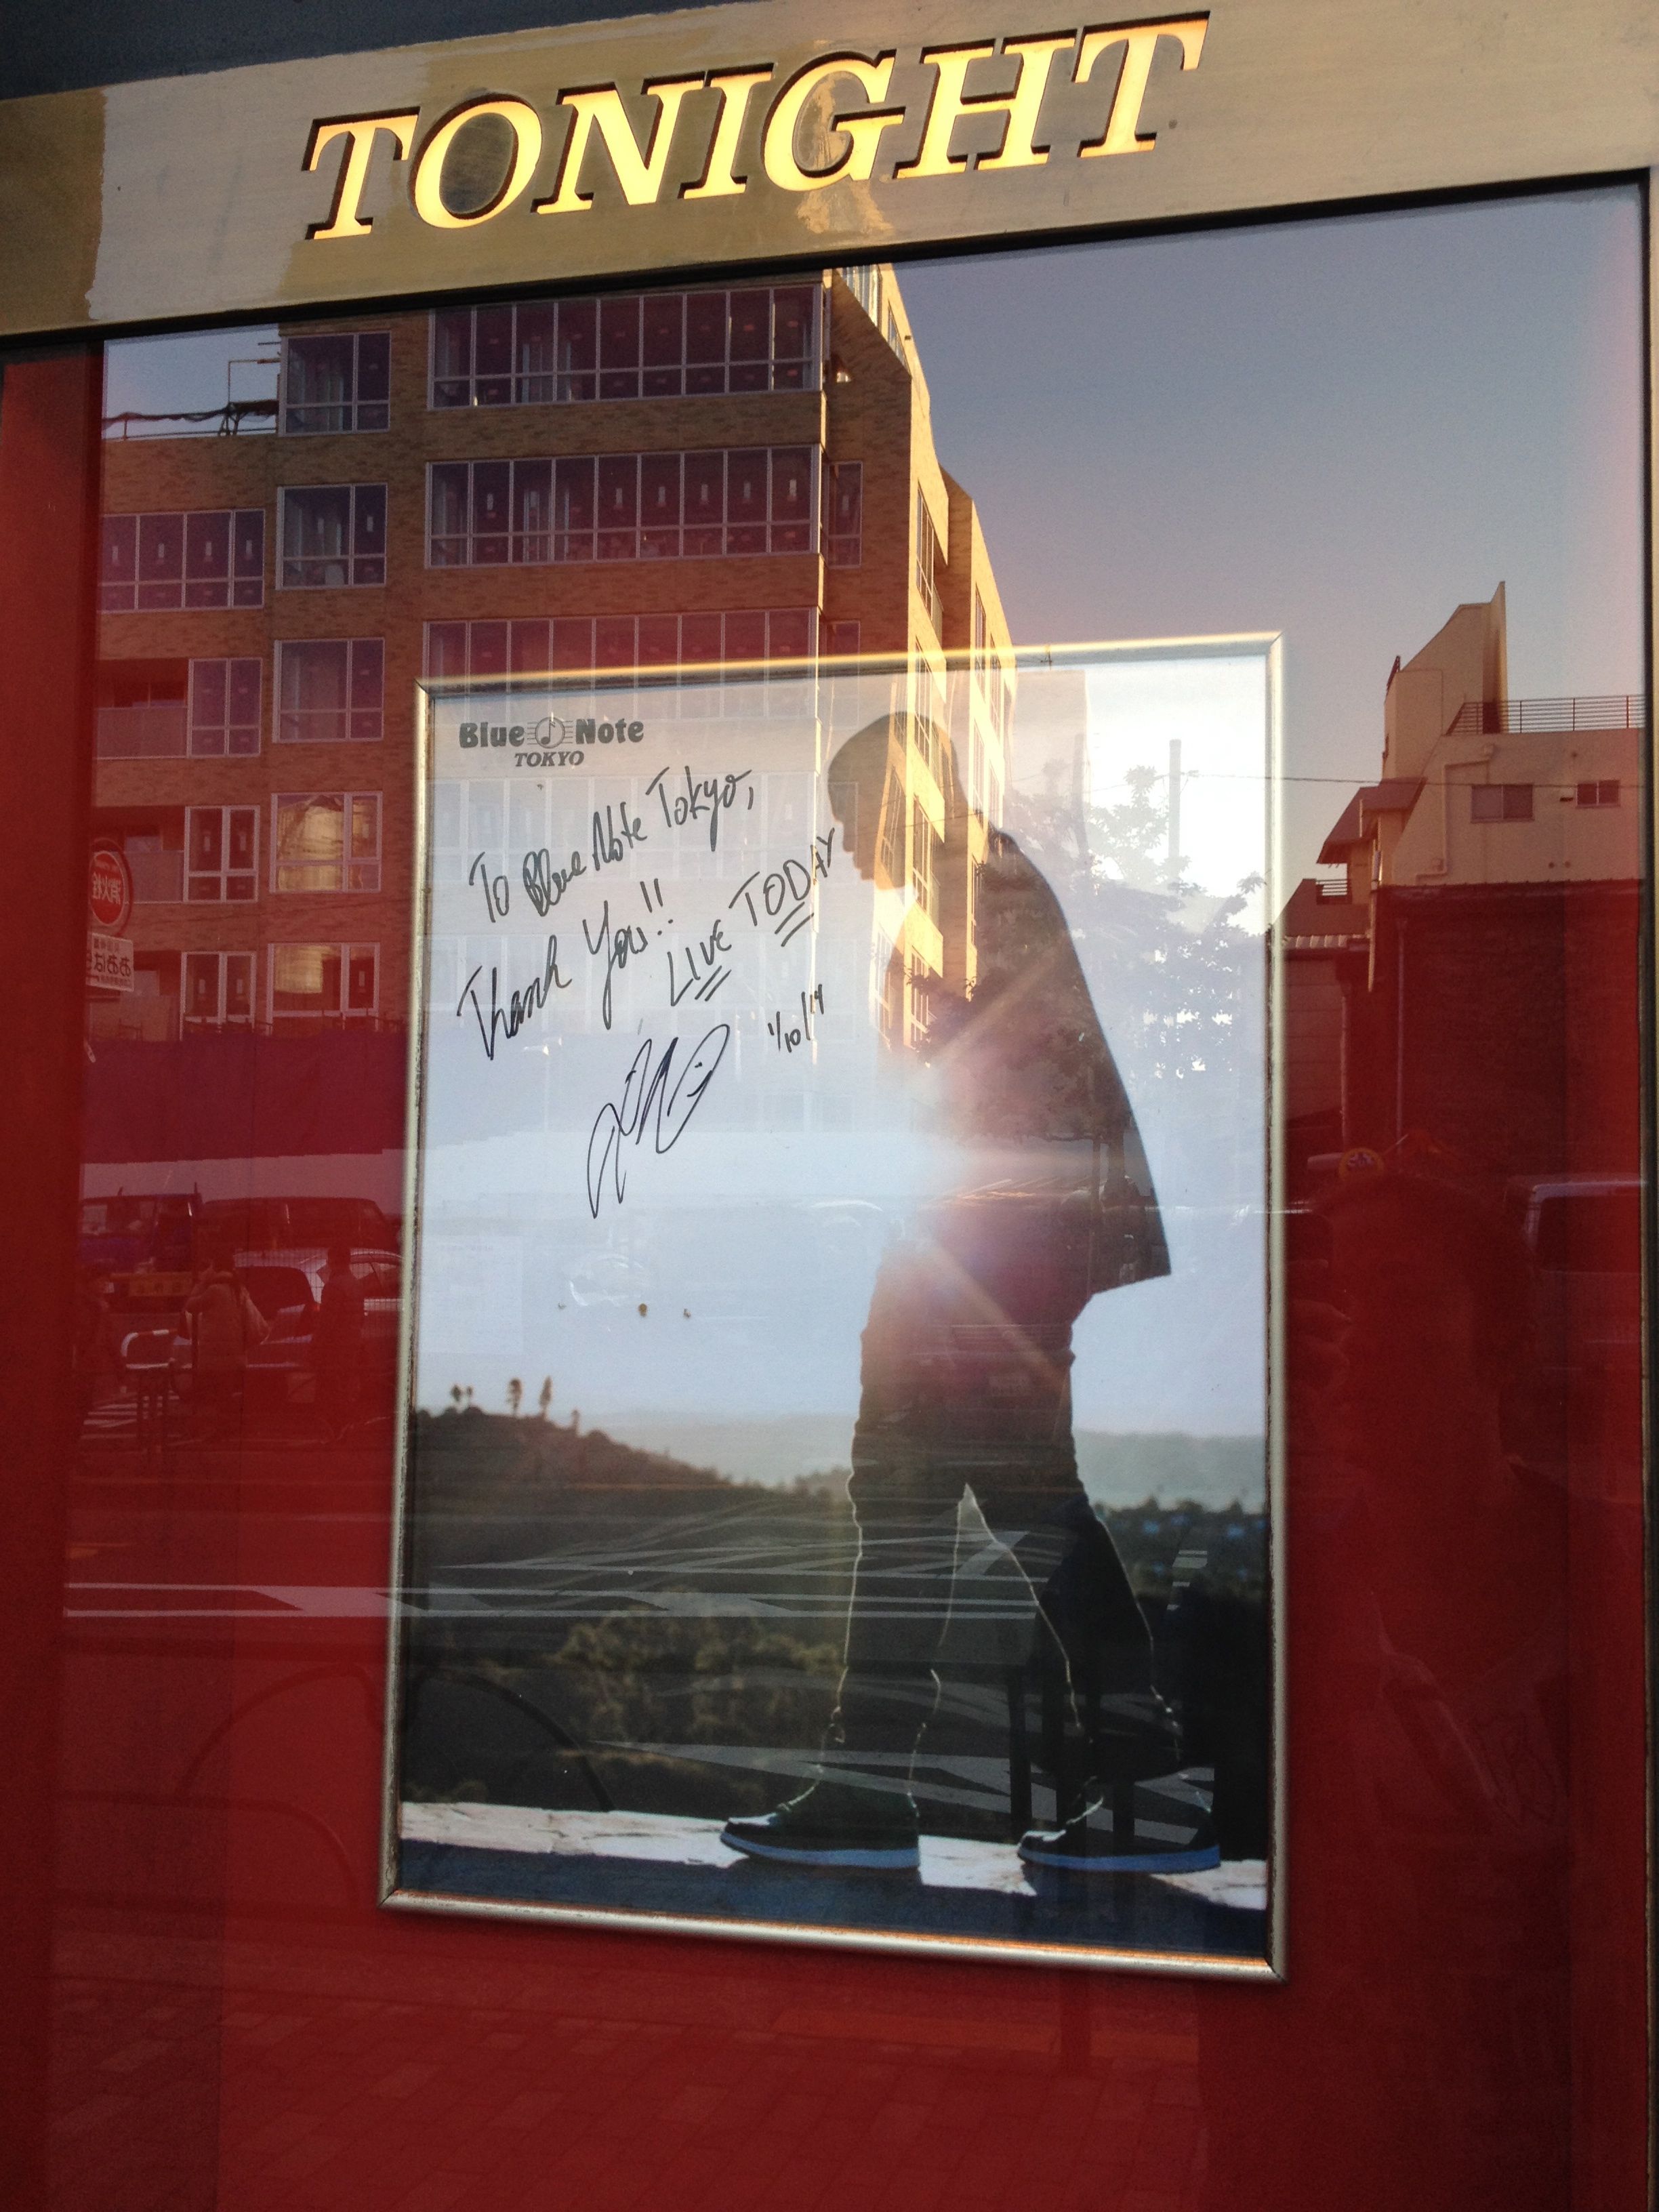 TONIGHT
Blue Note
TOKYO
To Blue Note Tokyo,
Thank You!!
LIVE TODAY
1/10/14